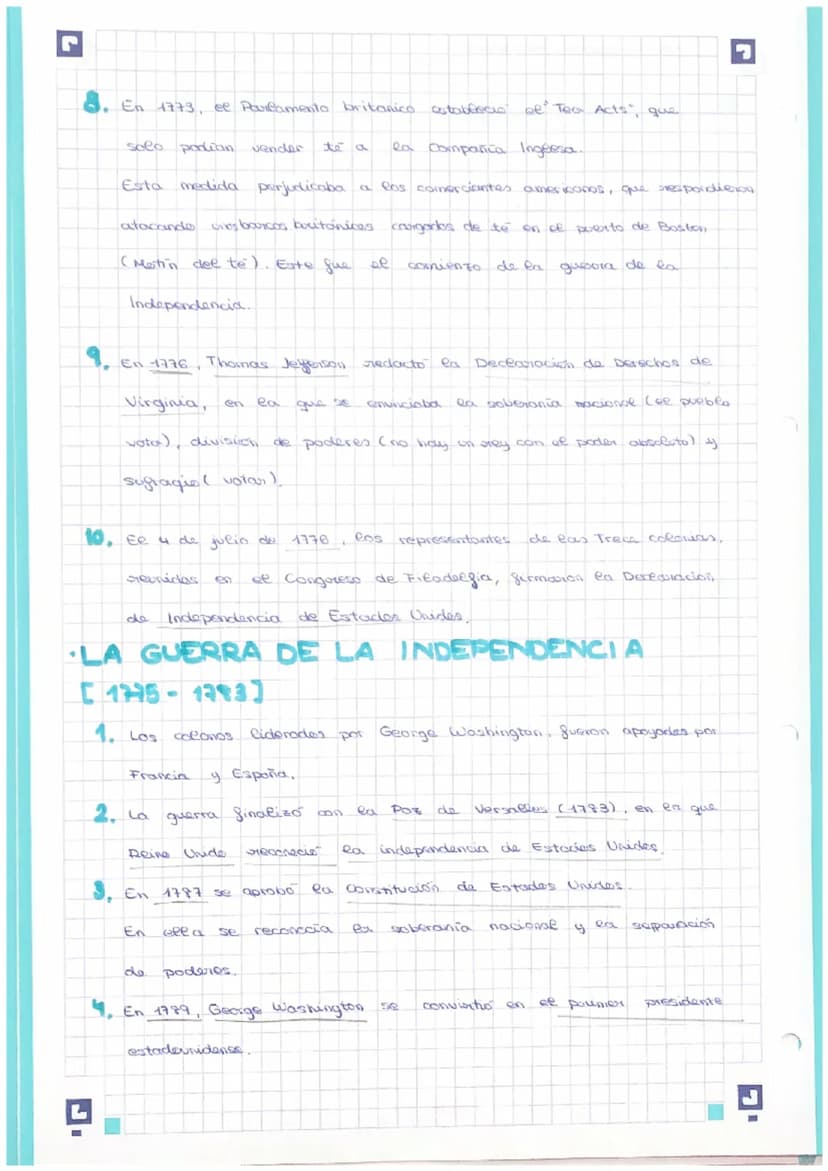 8. En 1773, el Parlamento britanico estableció el "Tea Acts", que
solo podían vender té a la Compañía Inglesa.
Esta medida perjudicaba a los comerciantes americanos, que respondieron
atacando unos barcos británicos cargados de té en el puerto de Boston
(Motín del té). Este fue el comienzo de la guerra de la
Independencia.
9. En 1776, Thomas Jefferson redactó la Declaración de Derechos de
Virginia, en la que se enunciaba la soberanía nacional (el pueblo
vota), división de poderes (no hay un rey con el poder absoluto) y
sufragio (votar).
10. El 4 de julio de 1776, los representantes de las Trece colonias,
reunidos en el Congreso de Filadelfia, firmaron la Declaración
de Independencia de Estados Unidos.
·LA GUERRA DE LA INDEPENDENCIA
[1775-1783]
1. Los colonos liderados por George Washington, fueron apoyados por
Francia y España.
2. La guerra finalizó con la Paz de Versalles (1783), en la que
Reino Unido reconoció la independencia de Estados Unidos.
3. En 1787 se aprobó la Constitución de Estados Unidos.
En ella se reconocía la soberanía nacional y la separación
de poderes.
4. En 1789, George Washington se convirtió en el primer presidente
estadounidense.